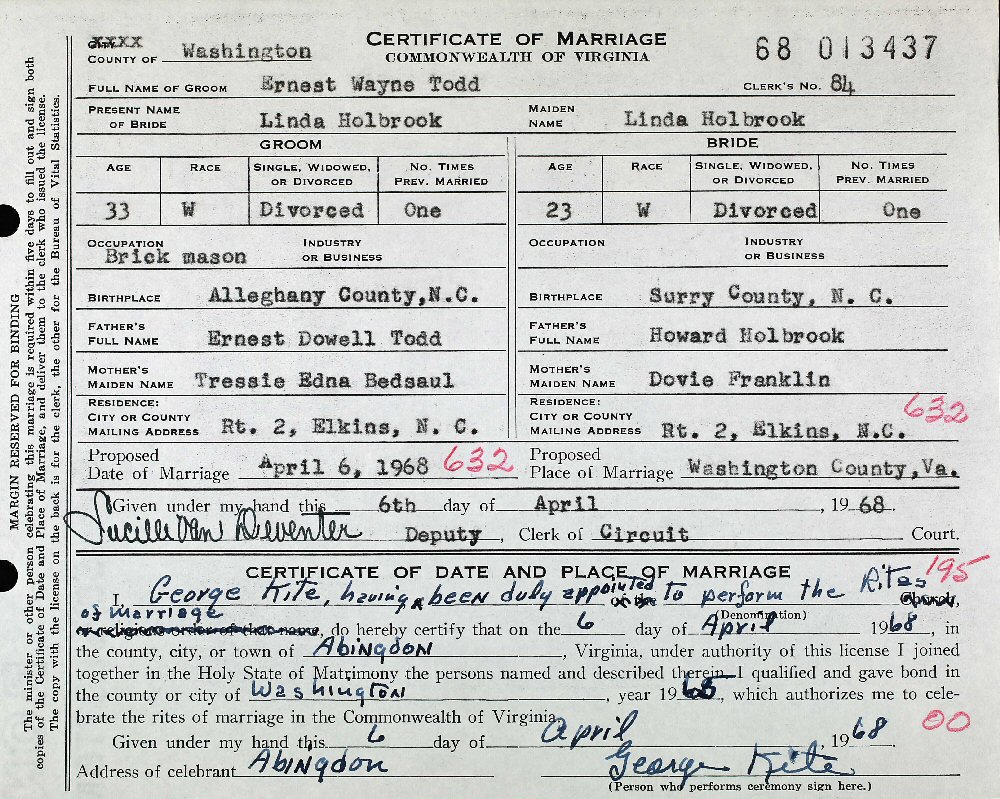 CITY XXXX
COUNTY OF Washington
CERTIFICATE OF MARRIAGE
COMMONWEALTH OF VIRGINIA
68 013437
FULL NAME OF GROOM Ernest Wayne Todd CLERK'S NO. 84
PRESENT NAME OF BRIDE Linda Holbrook MAIDEN NAME Linda Holbrook
GROOM BRIDE
AGE RACE SINGLE, WIDOWED, OR DIVORCED NO. TIMES PREV. MARRIED AGE RACE SINGLE, WIDOWED, OR DIVORCED NO. TIMES PREV. MARRIED
33 W Divorced One 23 W Divorced One
OCCUPATION Brick mason INDUSTRY OR BUSINESS OCCUPATION INDUSTRY OR BUSINESS
BIRTHPLACE Alleghany County,N.C. BIRTHPLACE Surry County, N. C.
FATHER'S FULL NAME Ernest Dowell Todd FATHER'S FULL NAME Howard Holbrook
MOTHER'S MAIDEN NAME Tressie Edna Bedsaul MOTHER'S MAIDEN NAME Dovie Franklin
RESIDENCE: CITY OR COUNTY MAILING ADDRESS Rt. 2, Elkins, N. C. RESIDENCE: CITY OR COUNTY MAILING ADDRESS Rt. 2, Elkins, N.C. 632
Proposed Date of Marriage April 6, 1968 632 Proposed Place of Marriage Washington County,Va.
Given under my hand this 6th day of April, 1968.
Lucille Van Deventer Deputy, Clerk of Circuit Court.
CERTIFICATE OF DATE AND PLACE OF MARRIAGE 195
I, George Kite, having been duly appointed to perform the Rites
of Marriage (Denomination)
or religious order of that name, do hereby certify that on the 6 day of April 1968, in
the county, city, or town of Abingdon, Virginia, under authority of this license I joined
together in the Holy State of Matrimony the persons named and described therein. I qualified and gave bond in
the county or city of Washington, year 1965, which authorizes me to cele-
brate the rites of marriage in the Commonwealth of Virginia.
Given under my hand this 6 day of April, 1968. 00
Address of celebrant Abingdon George Kite
(Person who performs ceremony sign here.)
MARGIN RESERVED FOR BINDING
The minister or other person celebrating this marriage is required within five days to fill out and sign both
copies of the Certificate of Date and Place of Marriage, and deliver them to the clerk who issued the license.
The copy with the license on the back is for the clerk, the other for the Bureau of Vital Statistics.